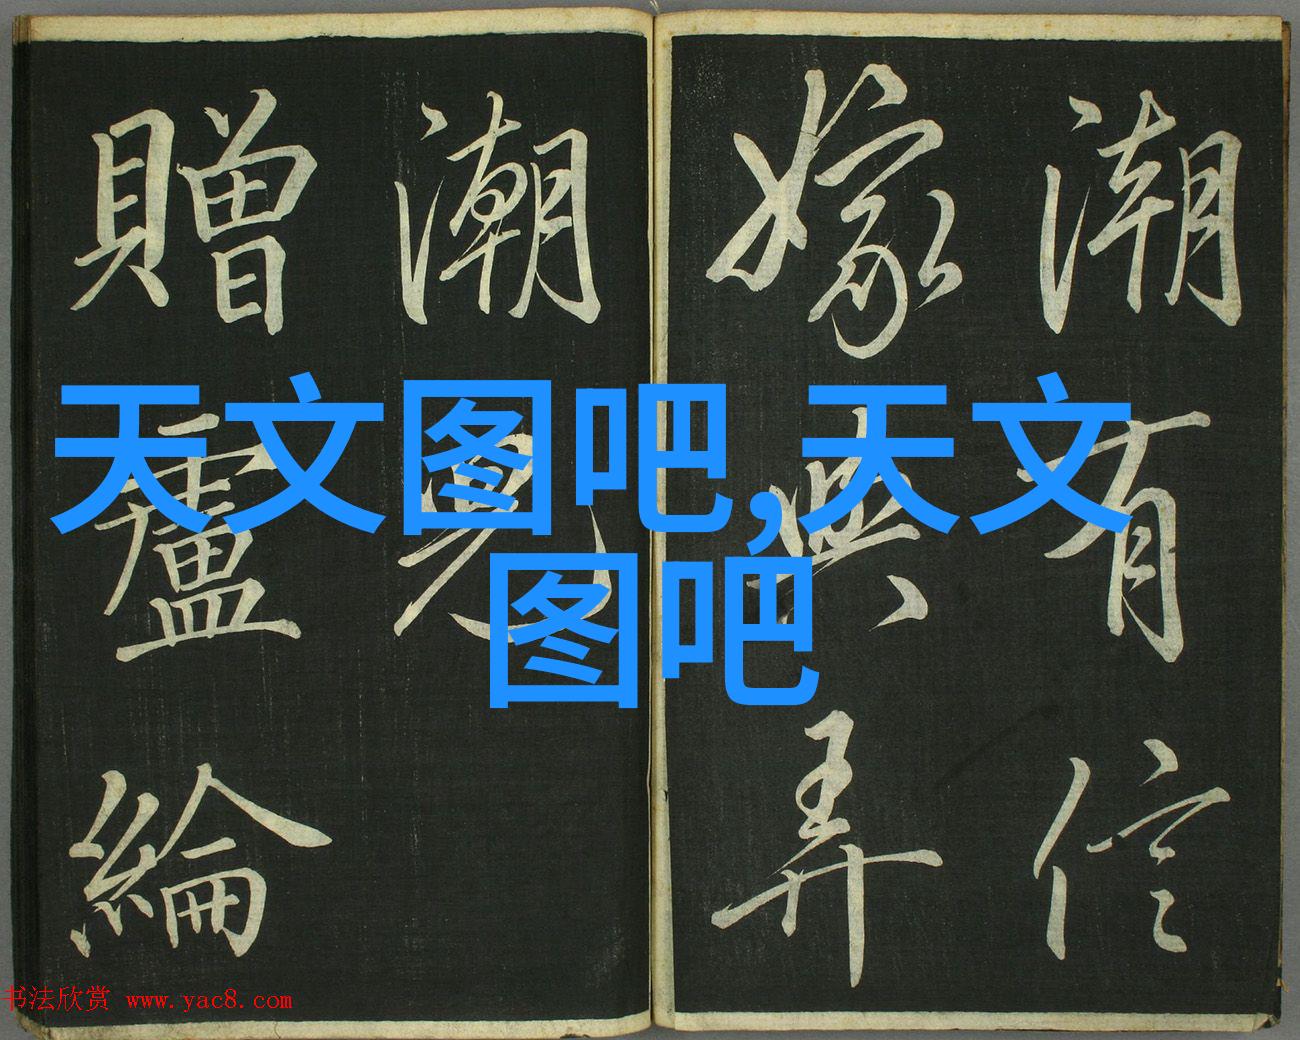 潮有信
嫁與弄
潮兒
贈盧綸
天文图吧,天文
图吧
书法欣赏 www.yac8.com